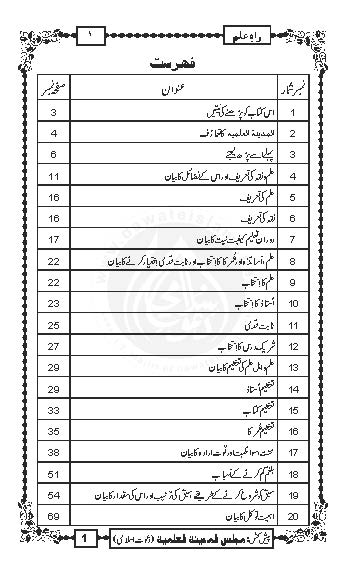 راہِ علم ۱
فہرست
نمبر شمار عنوان صفحہ نمبر
1 اس کتاب کو پڑھنے کی نیتیں 3
2 المدینۃ العلمیۃ کا تعارف 4
3 پہلے اسے پڑھ لیجئے 6
4 علم و فقہ کی تعریف اور اس کے فضائل کا بیان 11
5 علم کی تعریف 16
6 فقہ کی تعریف 16
7 دورانِ تعلیم کیفیتِ نیت کا بیان 17
8 علم، اساتذہ اور شرکا کا انتخاب اور ثابت قدمی اختیار کرنے کا بیان 22
9 علم کا انتخاب 22
10 اُستاذ کا انتخاب 23
11 ثابت قدمی 25
12 شریکِ درس کا انتخاب 27
13 علم و اہلِ علم کی تعظیم کا بیان 29
14 تعظیمِ اُستاذ 29
15 تعظیمِ کتاب 33
16 تعظیمِ شرکا 35
17 محنت، مواظبت اور قوتِ ارادہ کا بیان 38
18 بلغم کم کرنے کے اسباب 51
19 سبق کو شروع کرنے کے طریقے، سبق کی ترتیب اور اس کی مقدار کا بیان 54
20 اہمیتِ توکل کا بیان 69
پیش کش: مجلس المدینۃ العلمیۃ (دعوتِ اسلامی) 1